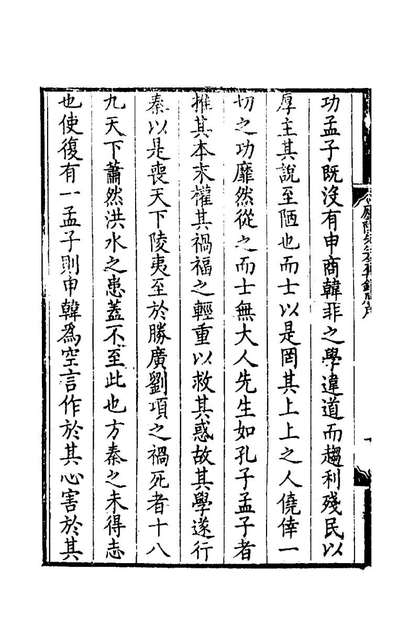 功孟子既没有申商韓非之學違道而趨利殘民以
厚主其說至陋也而士以是罔其上上之人僥倖一
切之功靡然從之而士無大人先生如孔子孟子者
推其本末權其禍福之輕重以救其惑故其學遂行
秦以是喪天下陵夷至於勝廣劉項之禍死者十八
九天下蕭然洪水之患蓋不至此也方秦之未得志
也使復有一孟子則申韓爲空言作於其心害於其